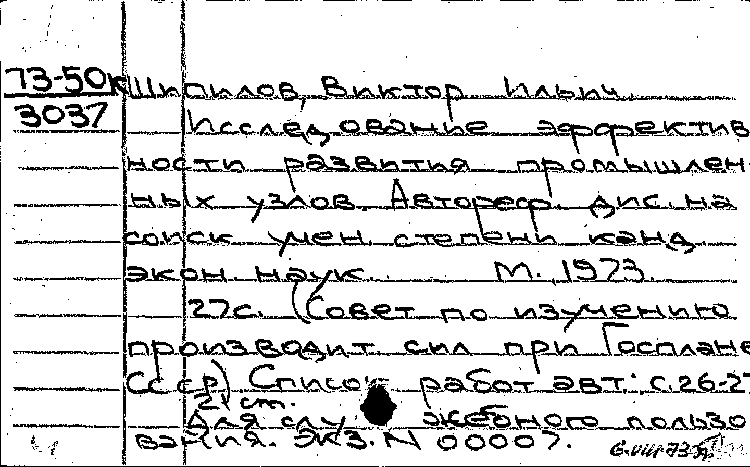 73-50к
3037
Шипилов, Виктор Ильич.
Исследование эффектив
ности развития промышлен
ных узлов. Автореф. дис. на
соиск учен. степени канд
экон. наук. М., 1973.
27с. (Совет по изучению
производит сил при Госплане
СССР) Список работ авт.: с.26-27
21 ст.
Для служебного пользо
вания. Экз. N 00007.
6-VIII-73